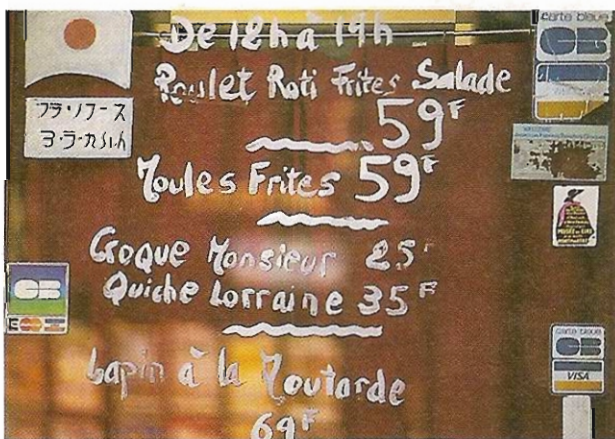 De 12h à 19h
Poulet Roti Frites Salade
59F
Moules Frites 59F
Croque Monsieur 25F
Quiche Lorraine 35F
Lapin à la Moutarde
69F
carte bleue
CB
WELCOME
CB
carte bleue
CB
VISA